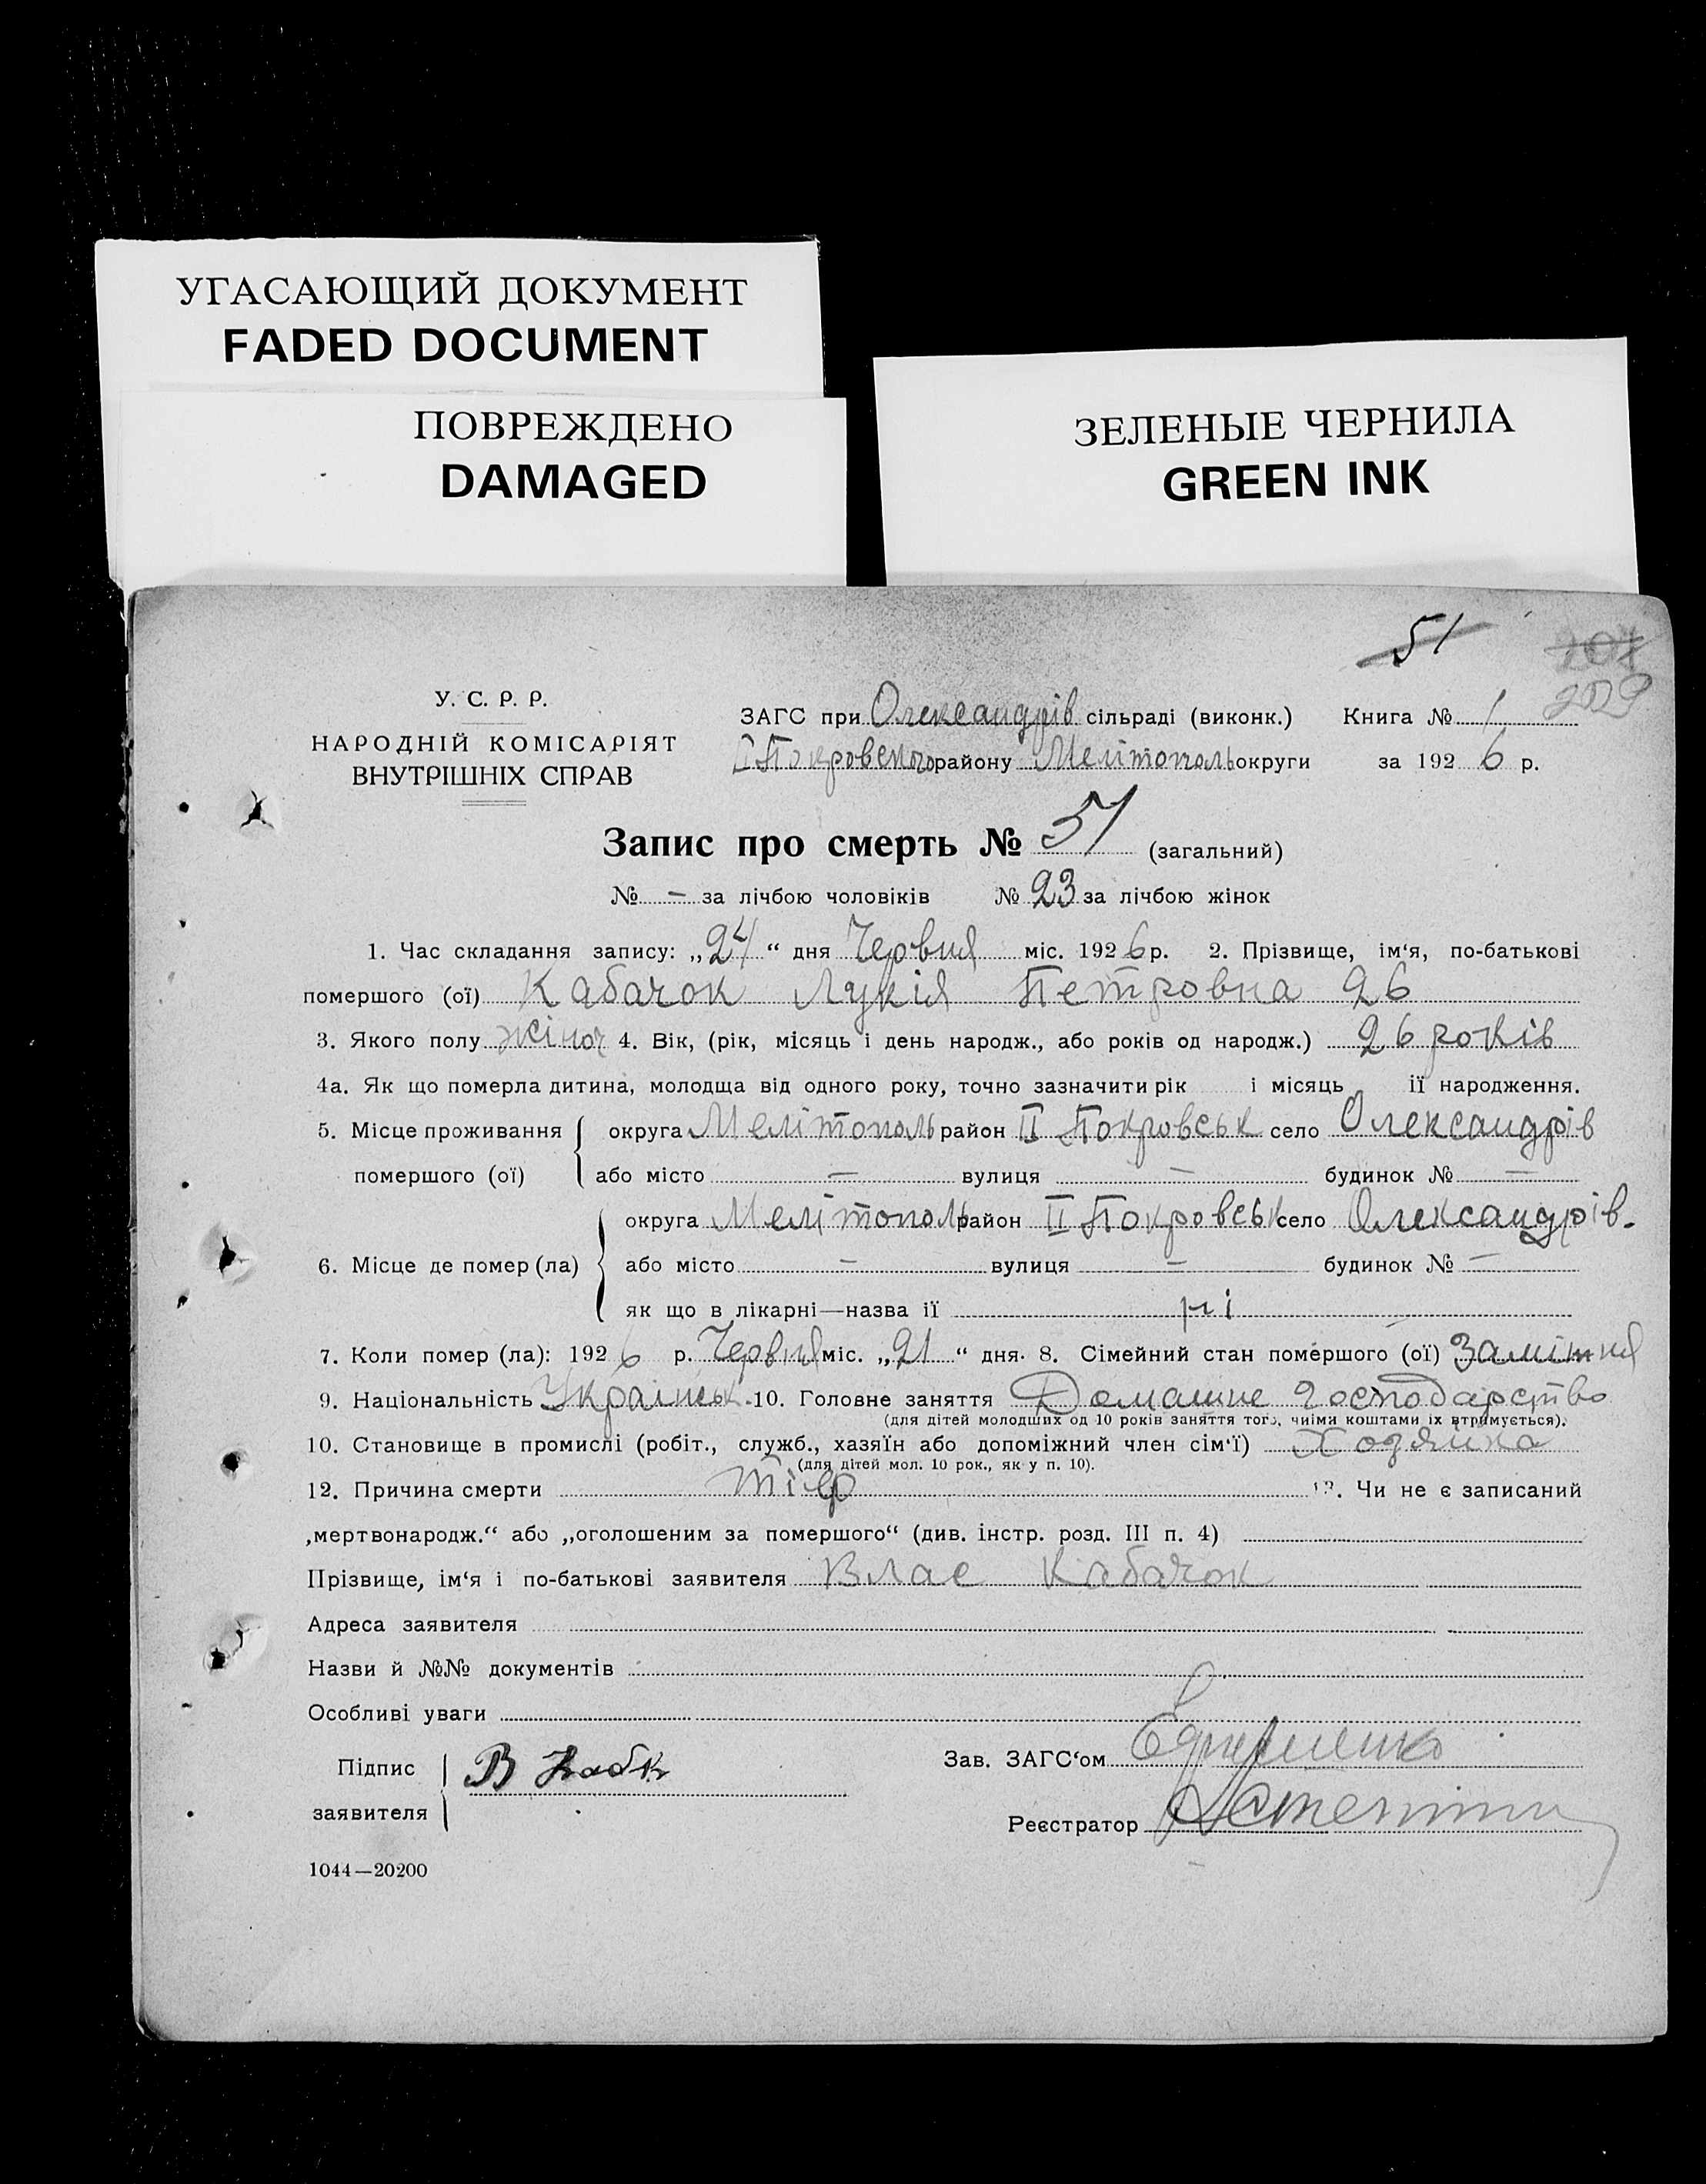 УГАСАЮЩИЙ ДОКУМЕНТ
FADED DOCUMENT
ПОВРЕЖДЕНО
DAMAGED
ЗЕЛЕНЫЕ ЧЕРНИЛА
GREEN INK
51
207
209
У. С. Р. Р.
НАРОДНІЙ КОМІСАРІЯТ
ВНУТРІШНІХ СПРАВ
ЗАГС при Олександрів сільраді (виконк.) Книга № 1
Покровського району Мелітополь округи за 1926 р.
Запис про смерть № 51 (загальний)
№ – за лічбою чоловіків № 23 за лічбою жінок
1. Час складання запису: „24“ дня Червня міс. 1926 р. 2. Прізвище, ім‘я, по-батькові
помершого (ої) Кабачок Лукія Петровна 26
3. Якого полу жіноч 4. Вік, (рік, місяць і день народж., або років од народж.) 26 років
4а. Як що померла дитина, молодща від одного року, точно зазначити рік і місяць її народження.
5. Місце проживання помершого (ої) округа Мелітополь район II Покровськ село Олександрів
або місто — вулиця — будинок № —
6. Місце де помер (ла) округа Мелітополь район II Покровськ село Олександрів.
або місто – вулиця – будинок № –
як що в лікарні—назва її ні
7. Коли помер (ла): 1926 р. Червня міс. „21“ дня. 8. Сімейний стан помершого (ої) Заміжня
9. Національність Українськ. 10. Головне заняття Домашне господарство
(для дітей молодших од 10 років заняття того, чиїми коштами їх втримується).
10. Становище в промислі (робіт., служб., хазяїн або допоміжний член сім‘ї) Ходяйка
(для дітей мол. 10 рок., як у п. 10).
12. Причина смерти тіф 13. Чи не є записаний
„мертвонародж.“ або „оголошеним за помершого“ (див. інстр. розд. III п. 4)
Прізвище, ім‘я і по-батькові заявителя Влас Кабачок
Адреса заявителя
Назви й №№ документів
Особливі уваги
Підпис заявителя В Кабк
Зав. ЗАГС‘ом
Реєстратор
1044—20200